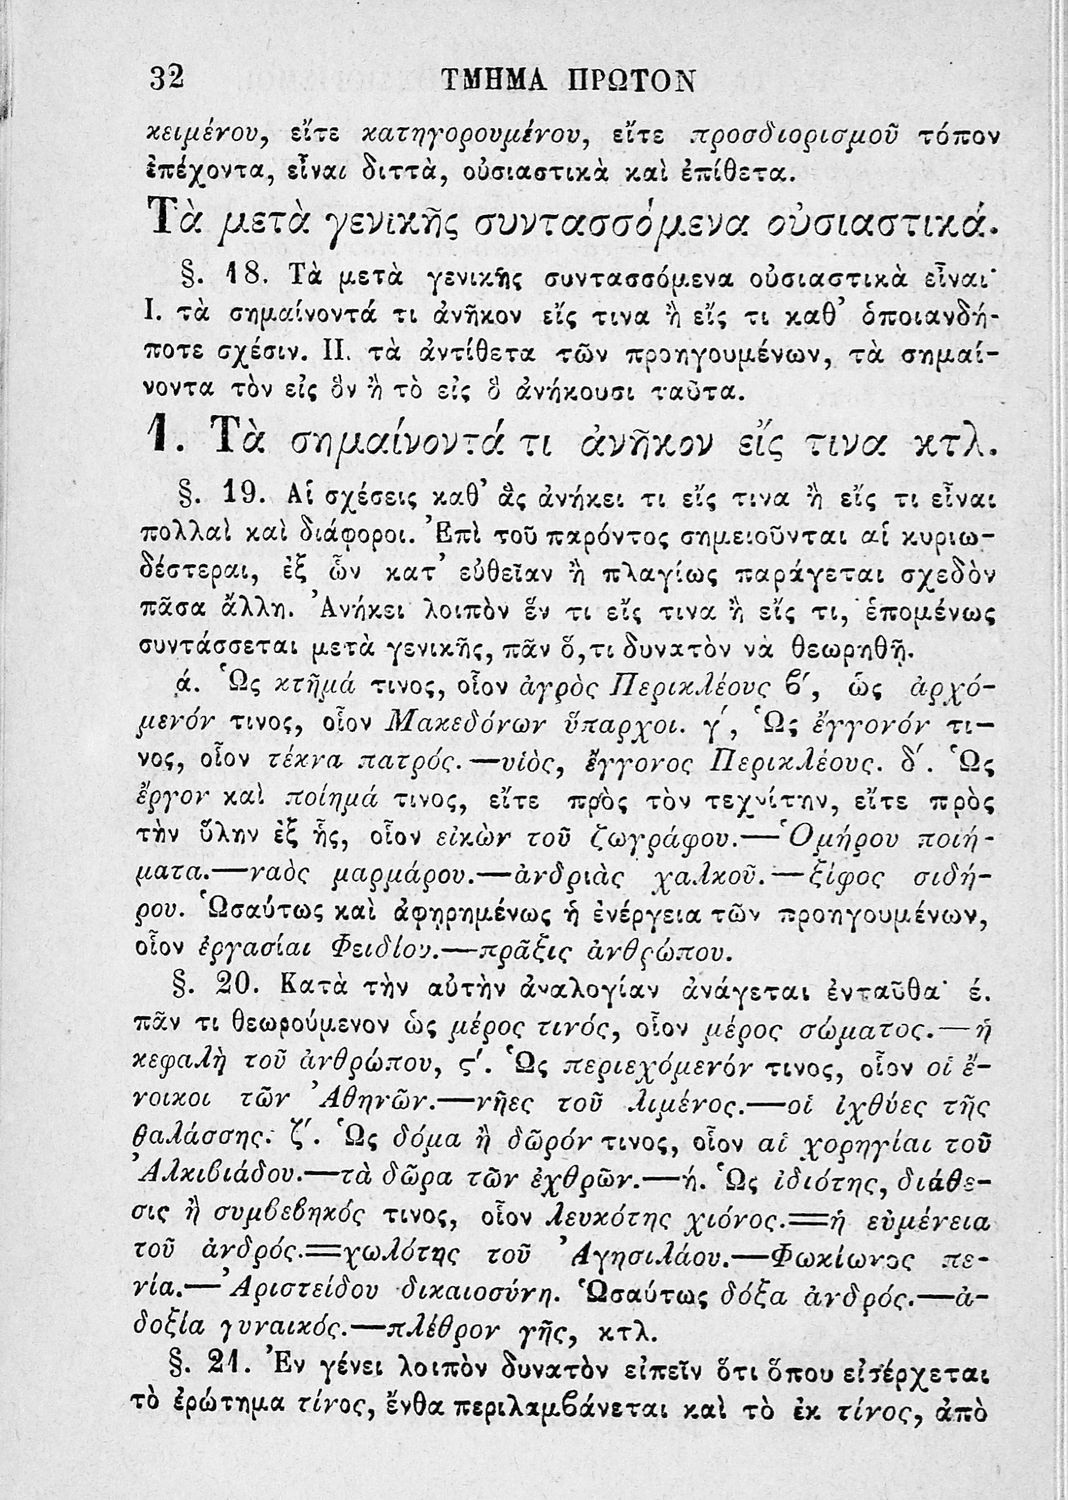 32 ΤΜΗΜΑ ΠΡΩΤΟΝ
κειμένου, εἴτε κατηγορουμένου, εἴτε προσδιορισμοῦ τόπον
ἐπέχοντα, εἶναι διττὰ, οὐσιαστικὰ καὶ ἐπίθετα.
Τὰ μετὰ γενικῆς συντασσόμενα οὐσιαστικά.
§. 18. Τὰ μετὰ γενικῆς συντασσόμενα οὐσιαστικὰ εἶναι·
I. τὰ σημαίνοντά τι ἀνῆκον εἴς τινα ἢ εἴς τι καθ’ ὁποιανδή-
ποτε σχέσιν. II. τὰ ἀντίθετα τῶν προηγουμένων, τὰ σημαί-
νοντα τὸν εἰς ὃν ἢ τὸ εἰς ὃ ἀνήκουσι ταῦτα.
1. Τὰ σημαίνοντά τι ἀνῆκον εἴς τινα κτλ.
§. 19. Αἱ σχέσεις καθ’ ἃς ἀνήκει τι εἴς τινα ἢ εἴς τι εἶναι
πολλαὶ καὶ διάφοροι. Ἐπὶ τοῦ παρόντος σημειοῦνται αἱ κυριω-
δέστεραι, ἐξ ὧν κατ’ εὐθεῖαν ἢ πλαγίως παράγεται σχεδὸν
πᾶσα ἄλλη. Ἀνήκει λοιπὸν ἕν τι εἴς τινα ἢ εἴς τι, ἑπομένως
συντάσσεται μετὰ γενικῆς, πᾶν ὅ,τι δυνατὸν νὰ θεωρηθῇ.
ά. Ὡς κτῆμά τινος, οἷον ἀγρὸς Περικλέους ϐ′, ὡς ἀρχό-
μενόν τινος, οἷον Μακεδόνων ὕπαρχοι. γ′, Ὡς ἔγγονόν τι-
νος, οἷον τέκνα πατρός.—υἱὸς, ἔγγονος Περικλέους. δ′. Ὡς
ἔργον καὶ ποίημά τινος, εἴτε πρὸς τὸν τεχνίτην, εἴτε πρὸς
τὴν ὕλην ἐξ ἧς, οἷον εἰκὼν τοῦ ζωγράφου.—Ὁμήρου ποιή-
ματα.—ναὸς μαρμάρου.—ἀνδριὰς χαλκοῦ.—ξίφος σιδή-
ρου. Ὡσαύτως καὶ ἀφῃρημένως ἡ ἐνέργεια τῶν προηγουμένων,
οἷον ἐργασίαι Φειδίου.—πρᾶξις ἀνθρώπου.
§. 20. Κατὰ τὴν αὐτὴν ἀναλογίαν ἀνάγεται ἐνταῦθα· έ.
πᾶν τι θεωρούμενον ὡς μέρος τινός, οἷον μέρος σώματος.—ἡ
κεφαλὴ τοῦ ἀνθρώπου, ς′. Ὡς περιεχόμενόν τινος, οἷον οἱ ἔ-
νοικοι τῶν Ἀθηνῶν.—νῆες τοῦ λιμένος.—οἱ ἰχθύες τῆς
θαλάσσης. ζ′. Ὡς δόμα ἢ δῶρόν τινος, οἷον αἱ χορηγίαι τοῦ
Ἀλκιϐιάδου.—τὰ δῶρα τῶν ἐχθρῶν.—ή. Ὡς ἰδιότης, διάθε-
σις ἢ συμϐεϐηκός τινος, οἷον λευκότης χιόνος.=ἡ εὐμένεια
τοῦ ἀνδρός.=χωλότης τοῦ Ἀγησιλάου.—Φωκίωνος πε-
νία.—Ἀριστείδου δικαιοσύνη. Ὡσαύτως δόξα ἀνδρός.—ἀ-
δοξία γυναικός.—πλέθρον γῆς, κτλ.
§. 21. Ἐν γένει λοιπὸν δυνατὸν εἰπεῖν ὅτι ὅπου εἰσέρχεται
τὸ ἐρώτημα τίνος, ἔνθα περιλαμϐάνεται καὶ τὸ ἐκ τίνος, ἀπὸ